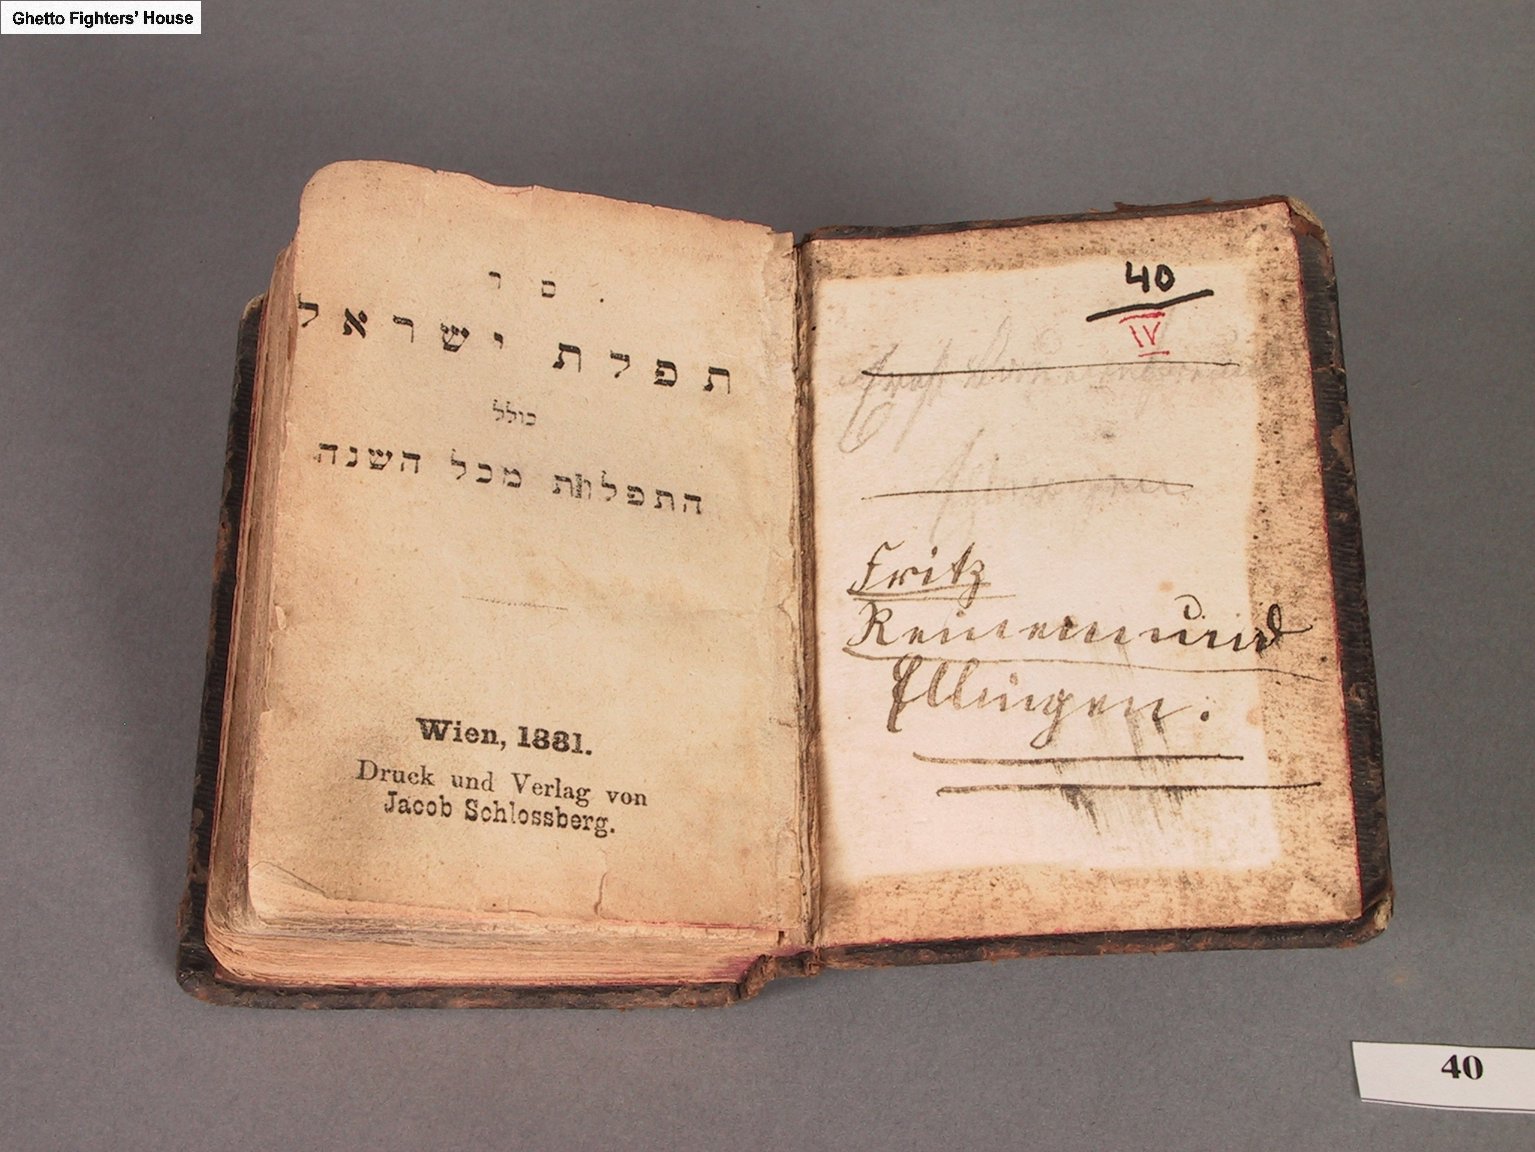 Ghetto Fighters' House
סר
תפלת ישראל
כולל
התפלות מכל השנה
Wien, 1881.
Druck und Verlag von
Jacob Schlossberg.
40
IV
Fritz
Reinemund
Ellingen.
40